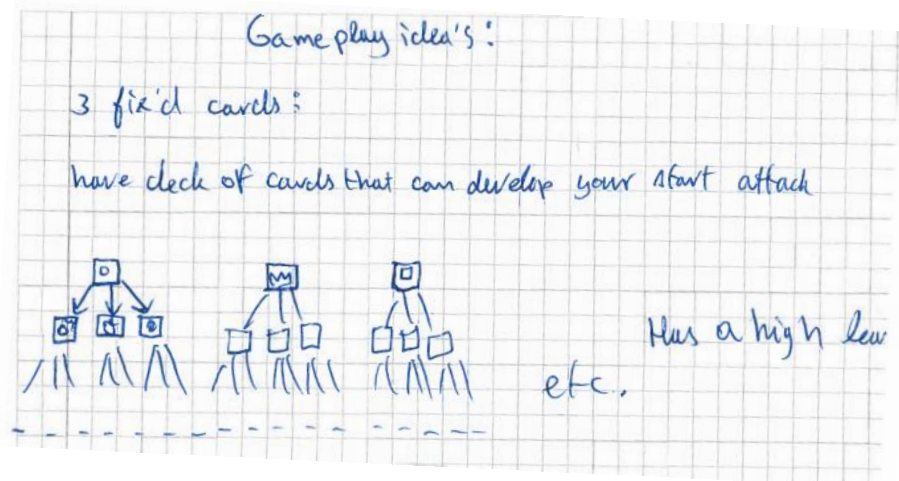 Gameplay idea's:
3 fix'd cards:
have deck of cards that can develop your start attack
Has a high
etc.